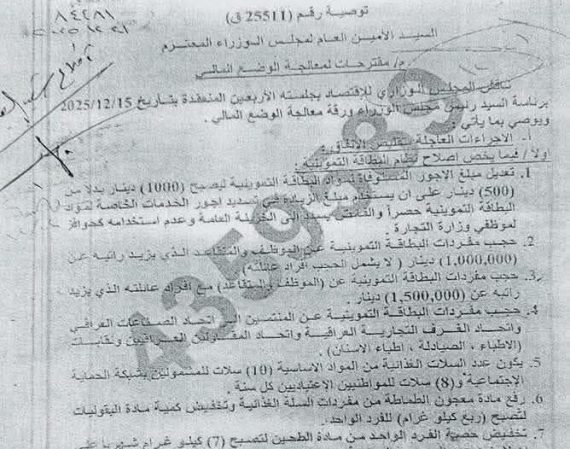 توصية رقم (25511 ق)
٨٤٢٨١
السيد الأمين العام لمجلس الوزراء المحترم
م/ مقترحات لمعالجة الوضع المالي
ناقش المجلس الوزاري للاقتصاد بجلسته الأربعين المنعقدة بتاريخ 2025/12/15
برئاسة السيد رئيس مجلس الوزراء ورقة معالجة الوضع المالي .
ويوصي بما يأتي :
أ- الاجراءات العاجلة لتقليص الانفاق:
اولاً/ فيما يخص اصلاح نظام البطاقة التموينية :
1. تعديل مبلغ الاجور المستوفاة لمواد البطاقة التموينية ليصبح (1000) دينار بدلا من
(500) دينار على ان يستخدم مبلغ الزيادة في تسديد اجور الخدمات الخاصة لمواد
البطاقة التموينية حصراً والفائض يسدد الى الخزينة العامة وعدم استخدامه كحوافز
لموظفي وزارة التجارة .
2. حجب مفردات البطاقة التموينية عن الموظف والمتقاعد الذي يزيد راتبه عن
(1,000,000) دينار ( لا يشمل الحجب افراد عائلته)
3. حجب مفردات البطاقة التموينية عن (الموظف والمتقاعد) مع افراد عائلته الذي يزيد
راتبه عن (1,500,000) دينار.
4. حجب مفردات البطاقة التموينية عن المنتسبين الى اتحاد الصناعات العراقي
واتحاد الغرف التجارية العراقية واتحاد المقاولين العراقيين ونقابات
(الاطباء ، الصيادلة ، اطباء الاسنان) .
5. يكون عدد السلات الغذائية من المواد الاساسية (10) سلات للمشمولين بشبكة الحماية
الاجتماعية و(8) سلات للمواطنين الاعتياديين كل سنة .
6. رفع مادة معجون الطماطة من مفردات السلة الغذائية وتخفيض كمية مادة البقوليات
لتصبح (ربع كيلو غرام) للفرد الواحد.
7. تخفيض حصة الفرد الواحد من مادة الطحين لتصبح (7) كيلو غرام شهريا على
4359589